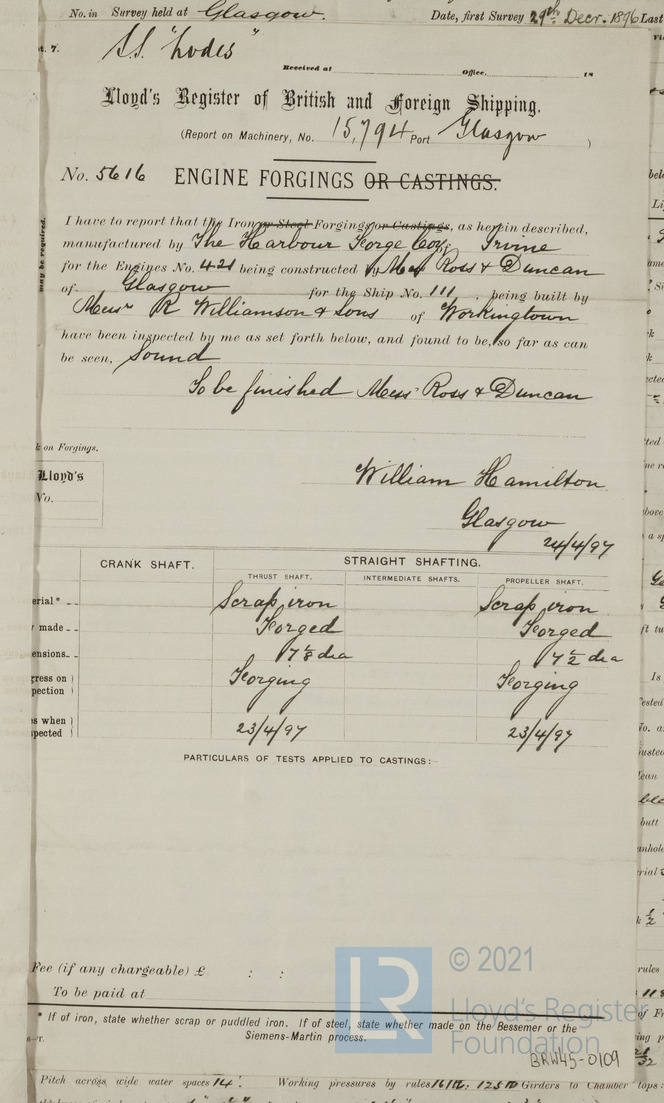 No. in Survey held at Glasgow. Date, first Survey 29th Decr. 1896 Last
S.S. "Lodes"
Received at Office. 18
Lloyd's Register of British and Foreign Shipping.
(Report on Machinery, No. 15,794 Port Glasgow )
No. 5616 ENGINE FORGINGS OR CASTINGS.
may be required.
I have to report that the Iron or Steel Forgings or Castings, as herein described,
manufactured by The Harbour Forge Coy. Irvine
for the Engines No. 421 being constructed by Mess Ross & Duncan
of Glasgow for the Ship No. 111, being built by
Messrs R Williamson & Sons of Workingtown
have been inspected by me as set forth below, and found to be, so far as can
be seen, Sound
To be finished Messrs Ross & Duncan
k on Forgings.
Lloyd's
No.
William Hamilton
Glasgow
24/4/97
CRANK SHAFT. STRAIGHT SHAFTING.
THRUST SHAFT. INTERMEDIATE SHAFTS. PROPELLER SHAFT.
erial* Scrap iron Scrap iron
made Forged Forged
ensions 7 1/2 dia
gress on
pection Forging Forging
s when
pected 23/4/97 23/4/97
PARTICULARS OF TESTS APPLIED TO CASTINGS:—
Fee (if any chargeable) £ : :
To be paid at
* If of iron, state whether scrap or puddled iron. If of steel, state whether made on the Bessemer or the
Siemens-Martin process.
© 2021
LR
Lloyd's Register
Foundation
BRW45-0109
Pitch across wide water spaces 14". Working pressures by rules Girders to Chamber tops: